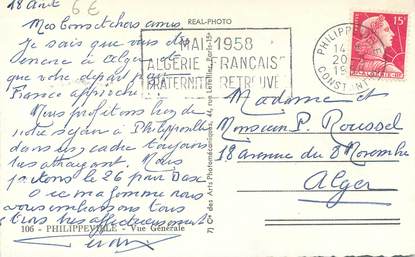 18 Août
6€
REAL-PHOTO
Mes bons et chers amis
Je sais que vous êtes
encore à Alger et
que votre départ pour
France approche.
Nous profitons hors de
notre séjour à Philippeville
dans un cadre toujours
très attrayant. Nous
partons le 26 pour Dax
nous vous embrassons tous
très affectueusement
106 - PHILIPPEVILLE - Vue Générale
7) Cie des Arts Photomécaniques, 44, rue Letellier, Paris-15e
MAI 1958
ALGÉRIE FRANÇAISE
FRATERNITÉ RETROUVÉE
PHILIPPEVILLE
14
20
19
CONSTANTINE
15F
Madame et
Monsieur P. Roussel
18 avenue du 8 Novembre
Alger